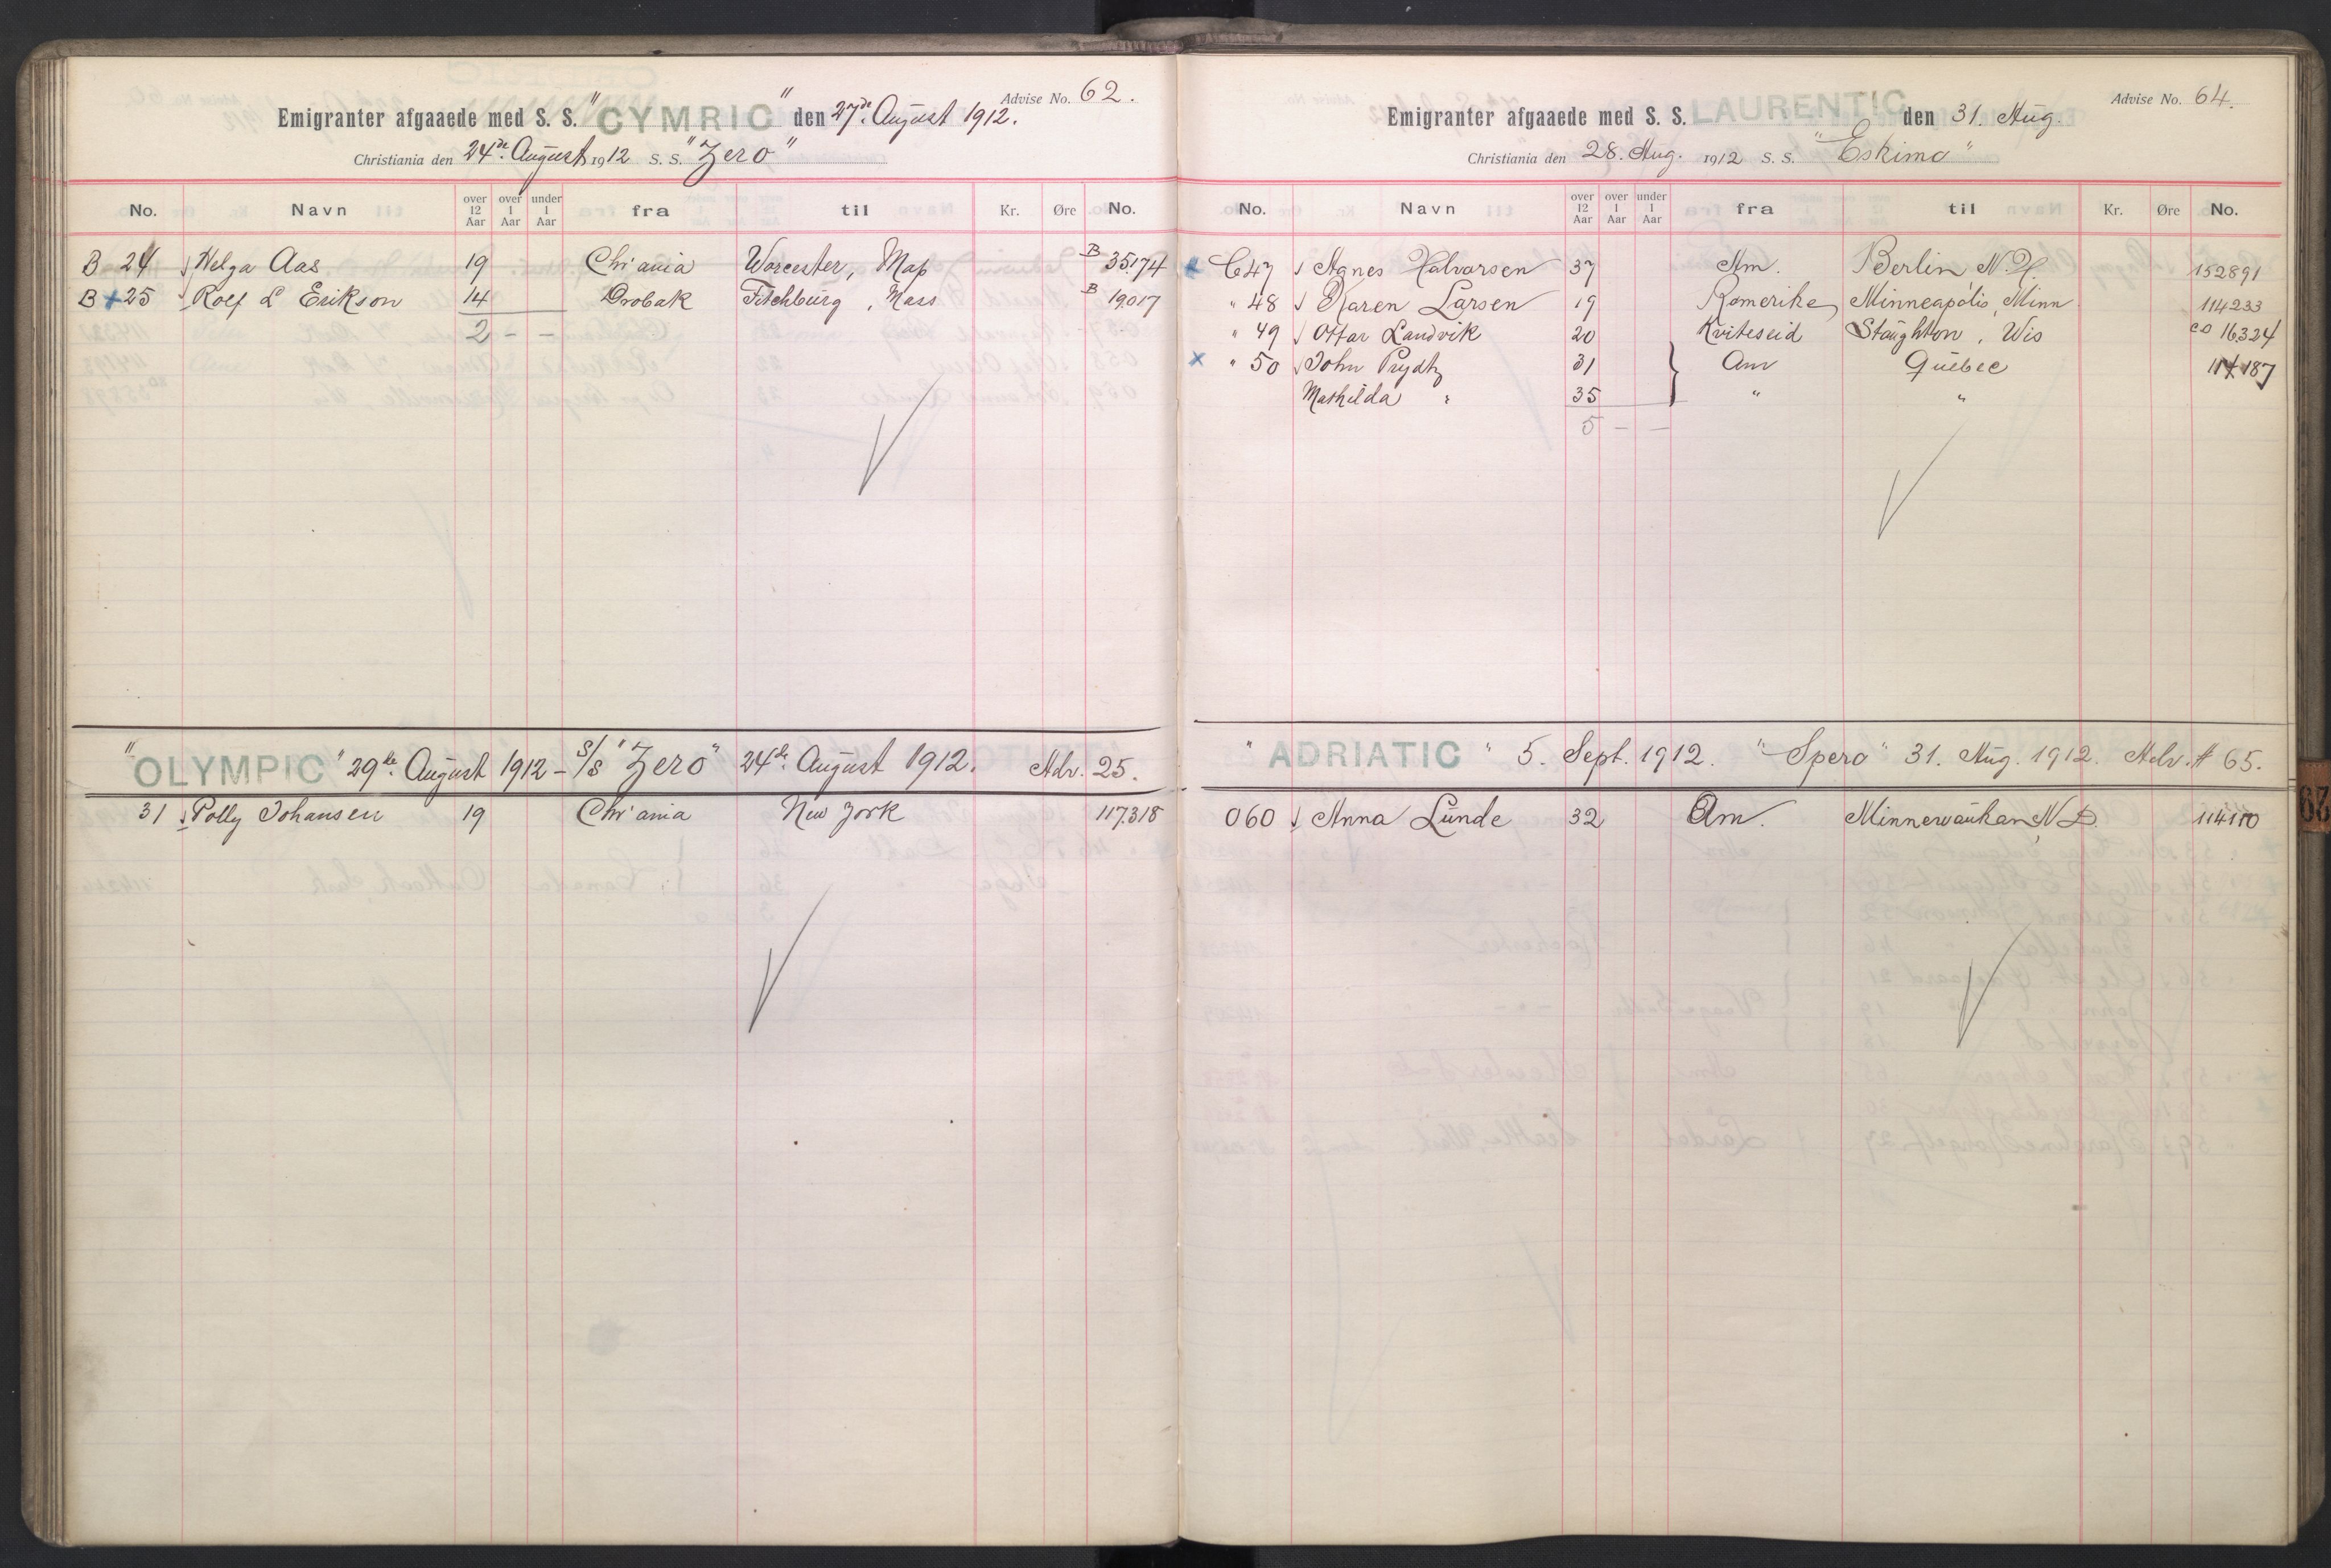 Advise No. 62.
Emigranter afgaaede med S. S. "CYMRIC" den 27de August 1912.
Christiania den 24de August 1912 S. S. "Zero"
No. Navn over 12 Aar over 1 Aar under 1 Aar fra til Kr. Øre No.
B 24 Helga Aas 19 Chr'ania Worcester, Mass B 35174
B + 25 Rolf L Erikson 14 Drobak Fitchburg, Mass B 19017
2 - -
"OLYMPIC" 29de August 1912 - S/s "Zero" 24de August 1912. Adv. 25.
31 Polly Johansen 19 Chr'ania New York 117.318
Advise No. 64.
Emigranter afgaaede med S. S. LAURENTIC den 31. Aug.
Christiania den 28. Aug. 1912 S. S. "Eskimo"
No. Navn over 12 Aar over 1 Aar under 1 Aar fra til Kr. Øre No.
x C 47 Agnes Halvorsen 37 Am. Berlin N.H. 152891
" 48 Karen Larsen 19 Romerike Minneapolis, Minn 114233
" 49 Ottar Landvik 20 Kviteseid Stoughton, Wis co 16324
x " 50 John Prydtz 31 Am Quebec 114187
Mathilda " 35 " "
5 - -
"ADRIATIC" 5. Sept. 1912. "Spero" 31. Aug. 1912. Adv. # 65.
060 Anna Lunde 32 Am. Minnewaukan, N.D. 114110